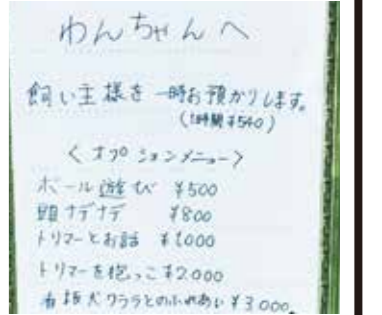 わんちゃんへ
飼い主様を一時お預かりします。
(1時間 ¥540)
<オプションメニュー>
ボール遊び ¥500
頭ナデナデ ¥800
トリマーとお話 ¥1000
トリマーを抱っこ ¥2000
看板犬クララとのふれあい ¥3000。